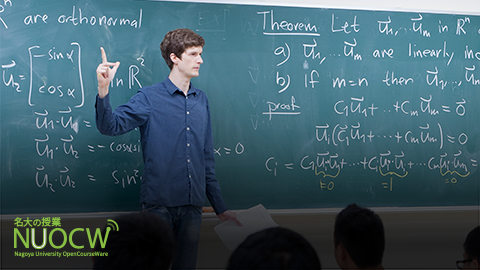 ℝⁿ are orthonormal
u⃗₂ = [-sin α
cos α] in ℝ²
u⃗₁·u⃗₁ =
u⃗₁·u⃗₂ = -cos α si
α = 0
u⃗₂·u⃗₂ = sin²
Theorem Let u⃗₁,…,u⃗ₘ in ℝⁿ
a) u⃗₁,…,u⃗ₘ are linearly inde
b) If m=n then u⃗₁,…,u⃗
proof c₁u⃗₁+⋯+cₘu⃗ₘ = 0⃗
u⃗ᵢ(c₁u⃗₁+⋯+cₘu⃗ₘ) = 0
cᵢ = c₁u⃗ᵢ·u⃗₁+⋯+cᵢu⃗ᵢ·u⃗ᵢ+⋯+cₘu⃗ᵢ·u⃗ₘ = 0
=0 =1 =0
名大の授業
NUOCW
Nagoya University OpenCourseWare